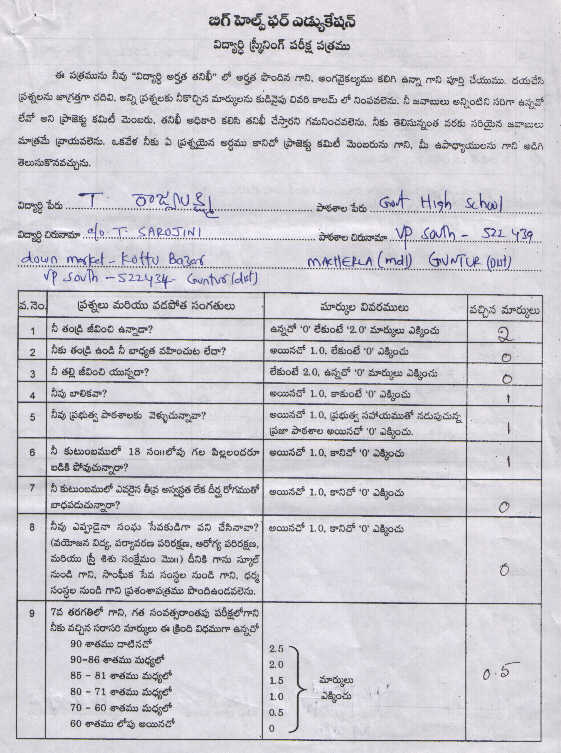 బిగ్ హెల్ప్ ఫర్ ఎడ్యుకేషన్
విద్యార్థి స్క్రీనింగ్ పరీక్ష పత్రము
ఈ పత్రమును నీవు "విద్యార్థి అర్హత తనిఖీ" లో అర్హత పొందిన గాని, అంగవైకల్యము కలిగి ఉన్నా గాని పూర్తి చేయుము. దయచేసి
ప్రశ్నలను జాగ్రత్తగా చదివి, అన్ని ప్రశ్నలకు నీకొచ్చిన మార్కులను కుడివైపు చివరి కాలమ్ లో నింపవలెను. నీ జవాబులు అన్నింటిని సరిగా ఉన్నవో
లేవో అని ప్రాజెక్టు కమిటీ మెంబరు, తనిఖీ అధికారి కలిసి తనిఖీ చేస్తారని గమనించవలెను. నీకు తెలిసినంత వరకు సరియైన జవాబులు
మాత్రమే వ్రాయవలెను. ఒకవేళ నీకు ఏ ప్రశ్నయైన అర్ధము కానిచో ప్రాజెక్టు కమిటీ మెంబరును గాని, మీ ఉపాధ్యాయులను గాని అడిగి
తెలుసుకొనవచ్చును.
విద్యార్థి పేరు T. రాజ్యలక్ష్మి పాఠశాల పేరు Govt High School
విద్యార్థి చిరునామా c/o T. SAROJINI పాఠశాల చిరునామా VP South - 522439
down market - Kottu Bazar MACHERLA (mdl) GUNTUR (Dist)
VP South - 522434 - Guntur (dist)
వ.నెం. ప్రశ్నలు మరియు వడపోత సంగతులు మార్కుల వివరములు వచ్చిన మార్కులు
1 నీ తండ్రి జీవించి ఉన్నాడా? ఉన్నచో '0' లేకుంటే '2.0' మార్కులు ఎక్కించు 2
2 నీకు తండ్రి ఉండి నీ బాధ్యత వహించుట లేదా? అయినచో 1.0, లేకుంటే '0' ఎక్కించు 0
3 నీ తల్లి జీవించి యున్నదా? లేకుంటే 2.0, ఉన్నచో '0' మార్కులు ఎక్కించు 0
4 నీవు బాలికవా? అయినచో 1.0, కాకుంటే '0' ఎక్కించు 1
5 నీవు ప్రభుత్వ పాఠశాలకు వెళ్ళుచున్నావా? అయినచో 1.0, ప్రభుత్వ సహాయముతో నడుపుచున్న
ప్రజా పాఠశాల అయినచో '0' ఎక్కించు. 1
6 నీ కుటుంబములో 18 సం॥లోపు గల పిల్లలందరూ అయినచో 1.0, కానిచో '0' ఎక్కించు 1
బడికి పోవుచున్నారా?
7 నీ కుటుంబములో ఎవరైన తీవ్ర అస్వస్థత లేక దీర్ఘ రోగముతో అయినచో 1.0, కానిచో '0' ఎక్కించు
బాధపడుచున్నారా? 0
8 నీవు ఎప్పుడైనా సంఘ సేవకుడిగా పని చేసినావా? అయినచో 1.0, కానిచో '0' ఎక్కించు
(వయోజన విద్య, పర్యావరణ పరిరక్షణ, ఆరోగ్య పరిరక్షణ,
మరియు స్త్రీ శిశు సంక్షేమం మొ॥) దీనికి గాను స్కూల్
నుండి గాని, సాంఘిక సేవ సంస్థల నుండి గాని, ధర్మ 0
సంస్థల నుండి గాని ప్రశంశాపత్రము పొందిఉండవలెను.
9 7వ తరగతిలో గాని, గత సంవత్సరాంతపు పరీక్షలోగాని
నీకు వచ్చిన సరాసరి మార్కులు ఈ క్రింది విధముగా ఉన్నచో
90 శాతము దాటినచో 2.5
90-86 శాతము మధ్యలో 2.0
85 - 81 శాతము మధ్యలో 1.5 మార్కులు 0.5
80 - 71 శాతము మధ్యలో 1.0 ఎక్కించు
70 - 60 శాతము మధ్యలో 0.5
60 శాతము లోపు అయినచో 0